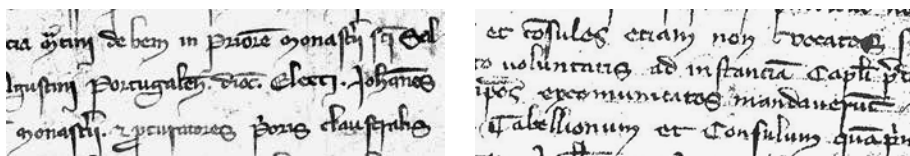 cia mͣtini de bem in Priorē monasťij scī Sal
Portugaleñ. dioc̄. Electi. Johanes
monasťij. ⁊ ꝓcuratores p̄oris claustralis
et cōsules etiam non vocatos
to voluntatis ad instanciā Capľi p̄
ip̄os excomunicatos mandaverūt
Tabellionum et Consulum